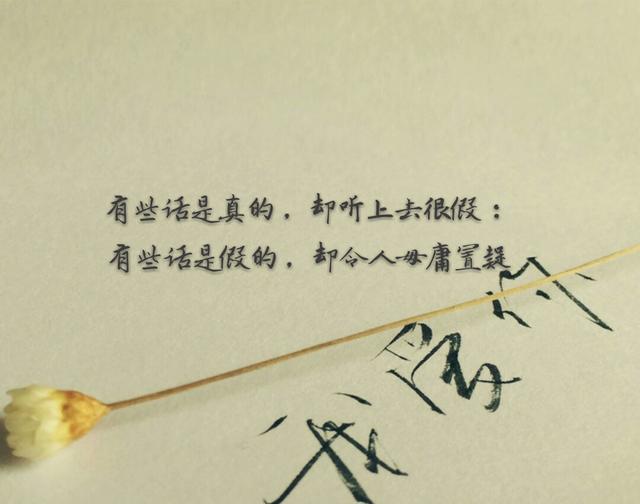 有些话是真的，却听上去很假：
有些话是假的，却令人毋庸置疑